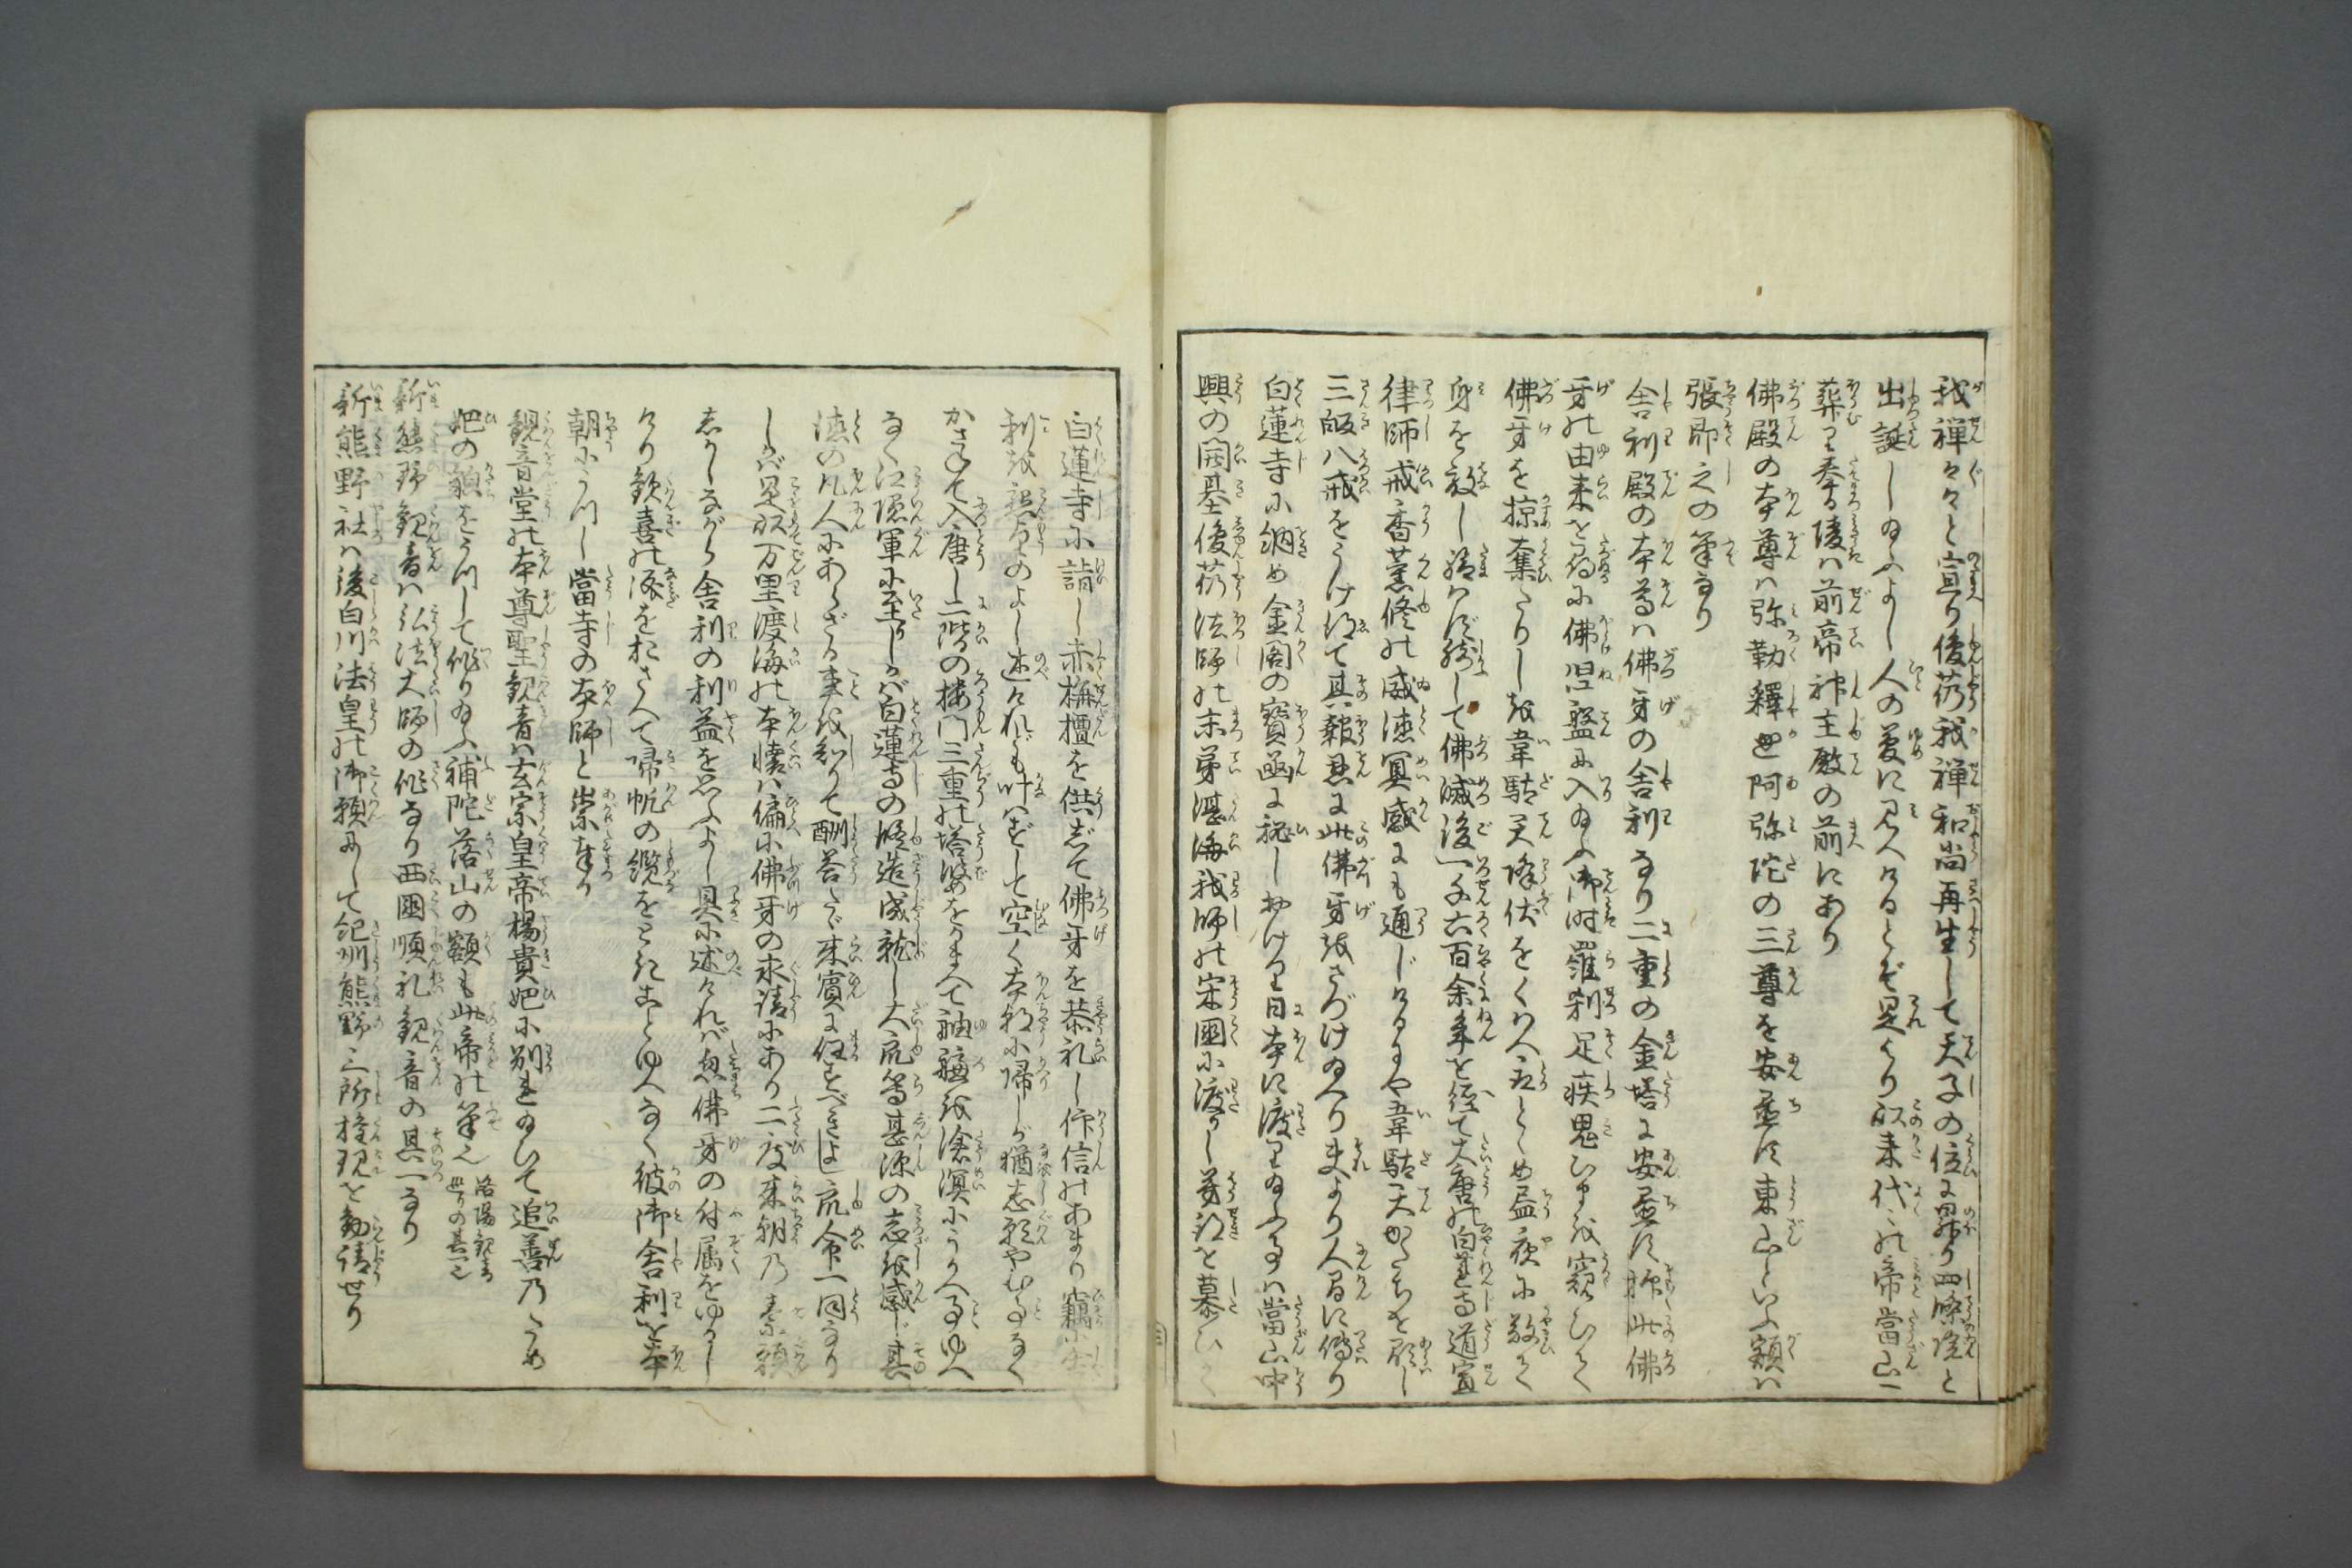 我禅々々と宣り俊芿我禅和尚再生して天子の位に昇り四條院と
出誕し給ふよし人の夢に見へけるとぞ是より以来代々の帝當山に
葬り奉る陵は前帝神主殿の前にあり
佛殿の本尊は弥勒釋迦阿弥陀の三尊を安置す東山といふ額は
張即之の筆なり
舎利殿の本尊は佛牙の舎利なり二重の金塔に安置す抑此佛
牙の由来を尋るに佛涅盤に入給ふ御時羅刹足疾鬼ひまを窺ひて
佛牙を掠奪たりしを韋駄天降伏をくはへ取とゞめ昼夜に敬て
身を放し給はず然して佛滅後一千六百余年を経て大唐の白蓮寺道宣
律師戒香薫修の威徳冥感にも通じけるにや韋駄天かたちを顕し
三皈八戒をうけ得て其報恩に此佛牙をさづけ給へり夫より人間に傳り
白蓮寺に納め金閣の寶函に秘しおけり日本に渡り給ふ事は當山中
興の開基俊芿法師の末弟湛海我師の宋國に渡りし芳蹤を慕ひて
白蓮寺に詣し赤栴檀を供じて佛牙を恭礼し作信のあまり竊に舎
利を懇望のよし述けれども叶はずして空く本朝に帰しが猶志願やむ事なく
かさねて入唐し二階の楼門三重の塔婆をかまへて舳艫を滄溟にうかへ事ゆへ
なく江陰軍に至しかば白蓮寺の修造成就し大衆等甚深の志を感じ其
徳の凡人にあらざる事を知りて酬答たゞ来賓に任すべきよし衆命一同なり
しかば是以万里渡海の本懐は偏に佛牙の求請にあり二度来朝乃素願
しかしながら舎利の利益を思ふよし具に述ければ忽佛牙の付属をゆるし
けり歓喜の涙をおさへて帰帆の纜をときことゆへなく彼御舎利を本
朝にうつし當寺の本師と崇奉り
観音堂の本尊聖観音は玄宗皇帝楊貴妃に別れ給ひて追善乃ため
妃の貌をうつして作り給ふ補陀落山の額も此帝の筆也 洛陽観音
廻りの其一也
新熊野観音は弘法大師の作なり西國順礼観音の其一なり
新熊野社は後白川法皇の御願にして紀州熊野三所権現を勧請せり